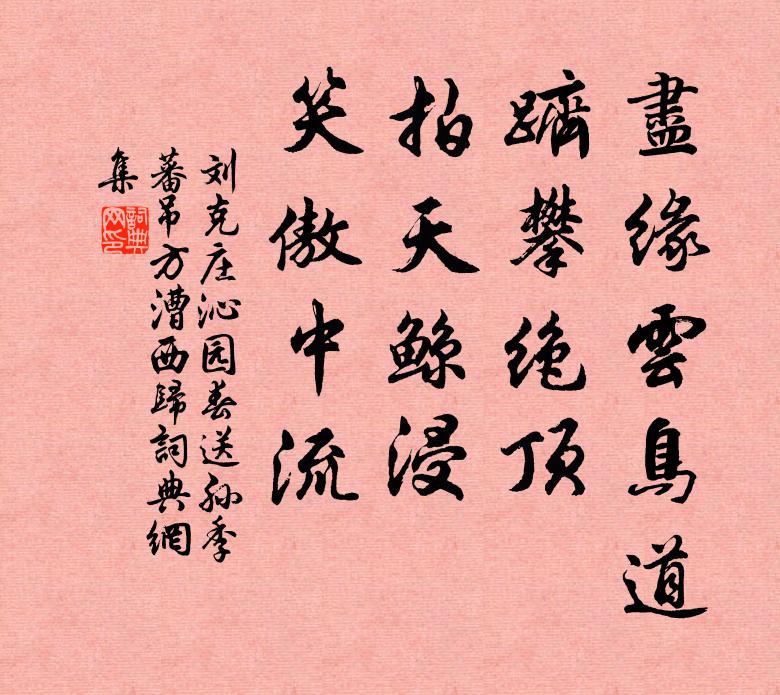 盡緣雲鳥道
躋攀絶頂
拍天鯨浸
笑傲中流
刘克庄沁园春送孙季
蕃吊方漕西歸詞典網
集
詞典
网印